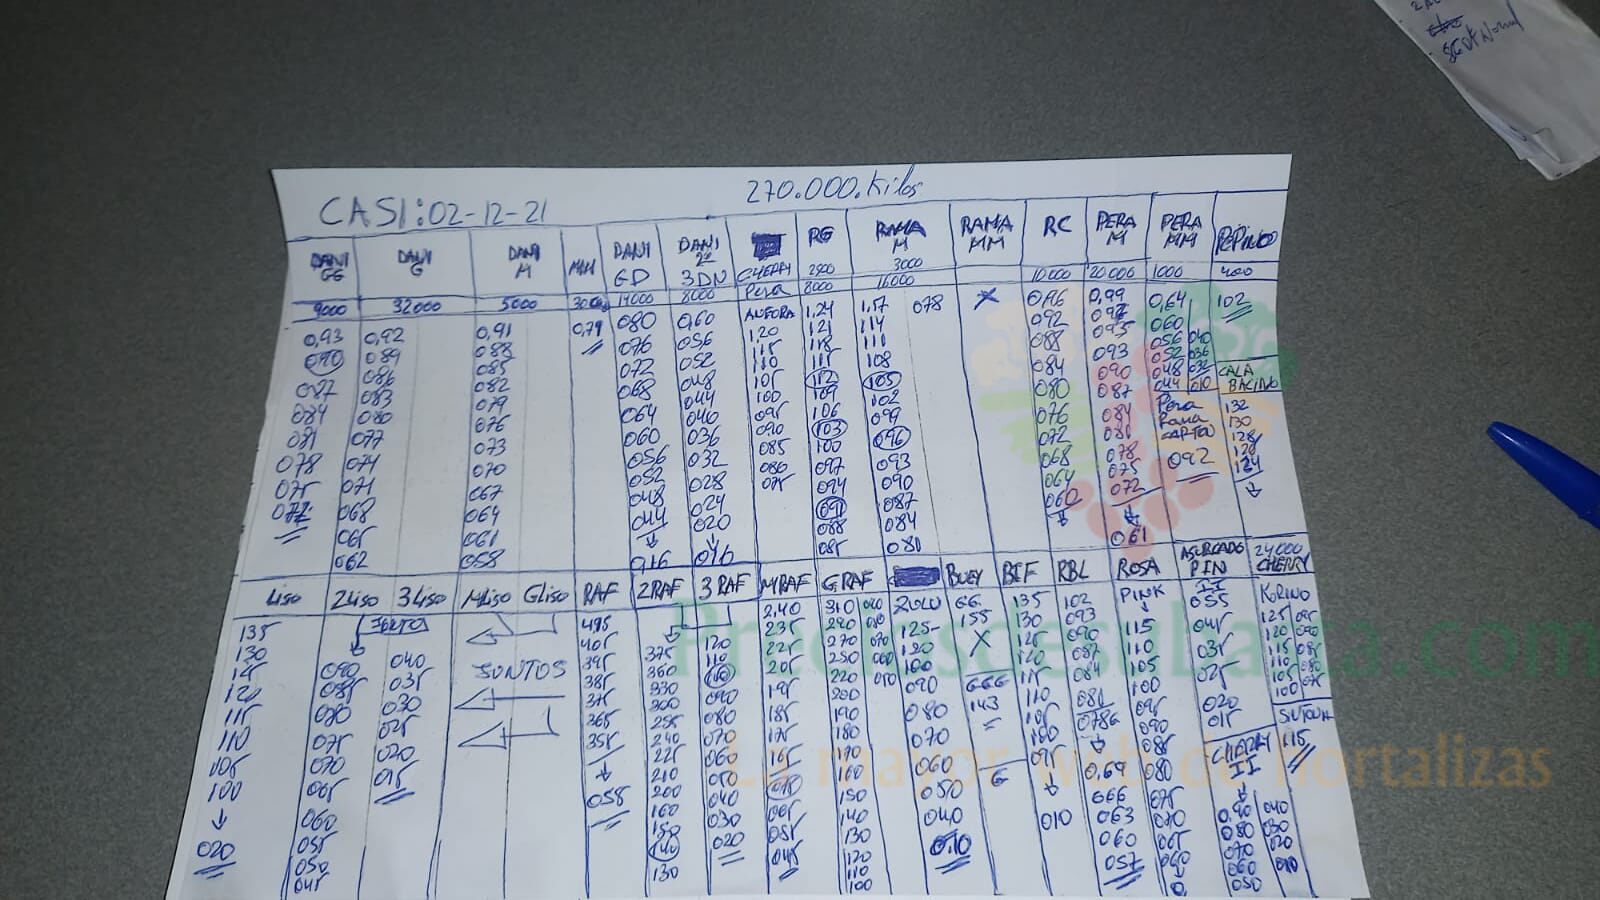 CASI: 02-12-21
270.000.Kilos
DANI GG
DANI G
DANI M
MM
DANI GD
DANI 2ª 3DN
CHERRY
RG
RAMA M
RAMA MM
RC
PERA M
PERA MM
PEPINO
9000 32000 5000 14000 8000 Pera 8000 16000 10000 20000 1000 400
3000
0,93
090
087
084
081
078
075
072
0,92
089
086
083
080
077
074
071
068
065
062
0,91
088
085
082
079
076
073
070
067
064
061
058
0,79
080
076
072
068
064
060
056
052
048
044
016
0,60
056
052
048
044
040
036
032
028
024
020
016
1,20
115
110
105
100
095
090
085
080
075
1,24
121
118
115
112
109
106
103
100
097
094
091
088
085
1,17 078
114
111
108
105
102
099
096
093
090
087
084
081
X
0,96
092
088
084
080
076
072
068
064
060
0,99
097
095
093
090
087
084
081
078
075
072
061
0,64
060
056 040
052 036
048 032
044 010
Pera
Rama
092
102
CALA
BACINO
132
130
128
126
124
Liso 2Liso 3Liso MLiso GLiso RAF 2RAF 3RAF MRAF GRAF BUEY BIF RBL ROSA ASURCADO PIN 24,000 CHERRY
135
130
125
120
115
110
105
100
020
JUNTO
090
085
080
075
070
065
060
055
050
045
040
035
030
025
020
015
JUNTOS
495
405
395
385
375
365
355
058
375
360
330
300
255
240
225
210
200
160
150
140
130
120
110
100
090
080
070
060
050
040
030
020
2,40
235
225
205
195
185
175
165
075
065
055
045
310
290
270
250
220
200
190
180
170
160
150
140
130
120
110
100
125
120
100
090
080
070
060
050
040
010
GG.
155
X
GGG
143
G
135
130
125
120
115
110
105
100
095
010
102
093
090
087
084
081
078
0,69
066
063
060
057
PINK
115
110
105
100
095
090
085
080
075
070
065
060
0
II
055
045
035
025
020
015
CHERRY
II
0,90 040
080 030
070 020
060 010
050
125 095
120 090
115 085
110 080
105 075
100
115
PreciosdeSubasta.com
La mayor web de hortalizas